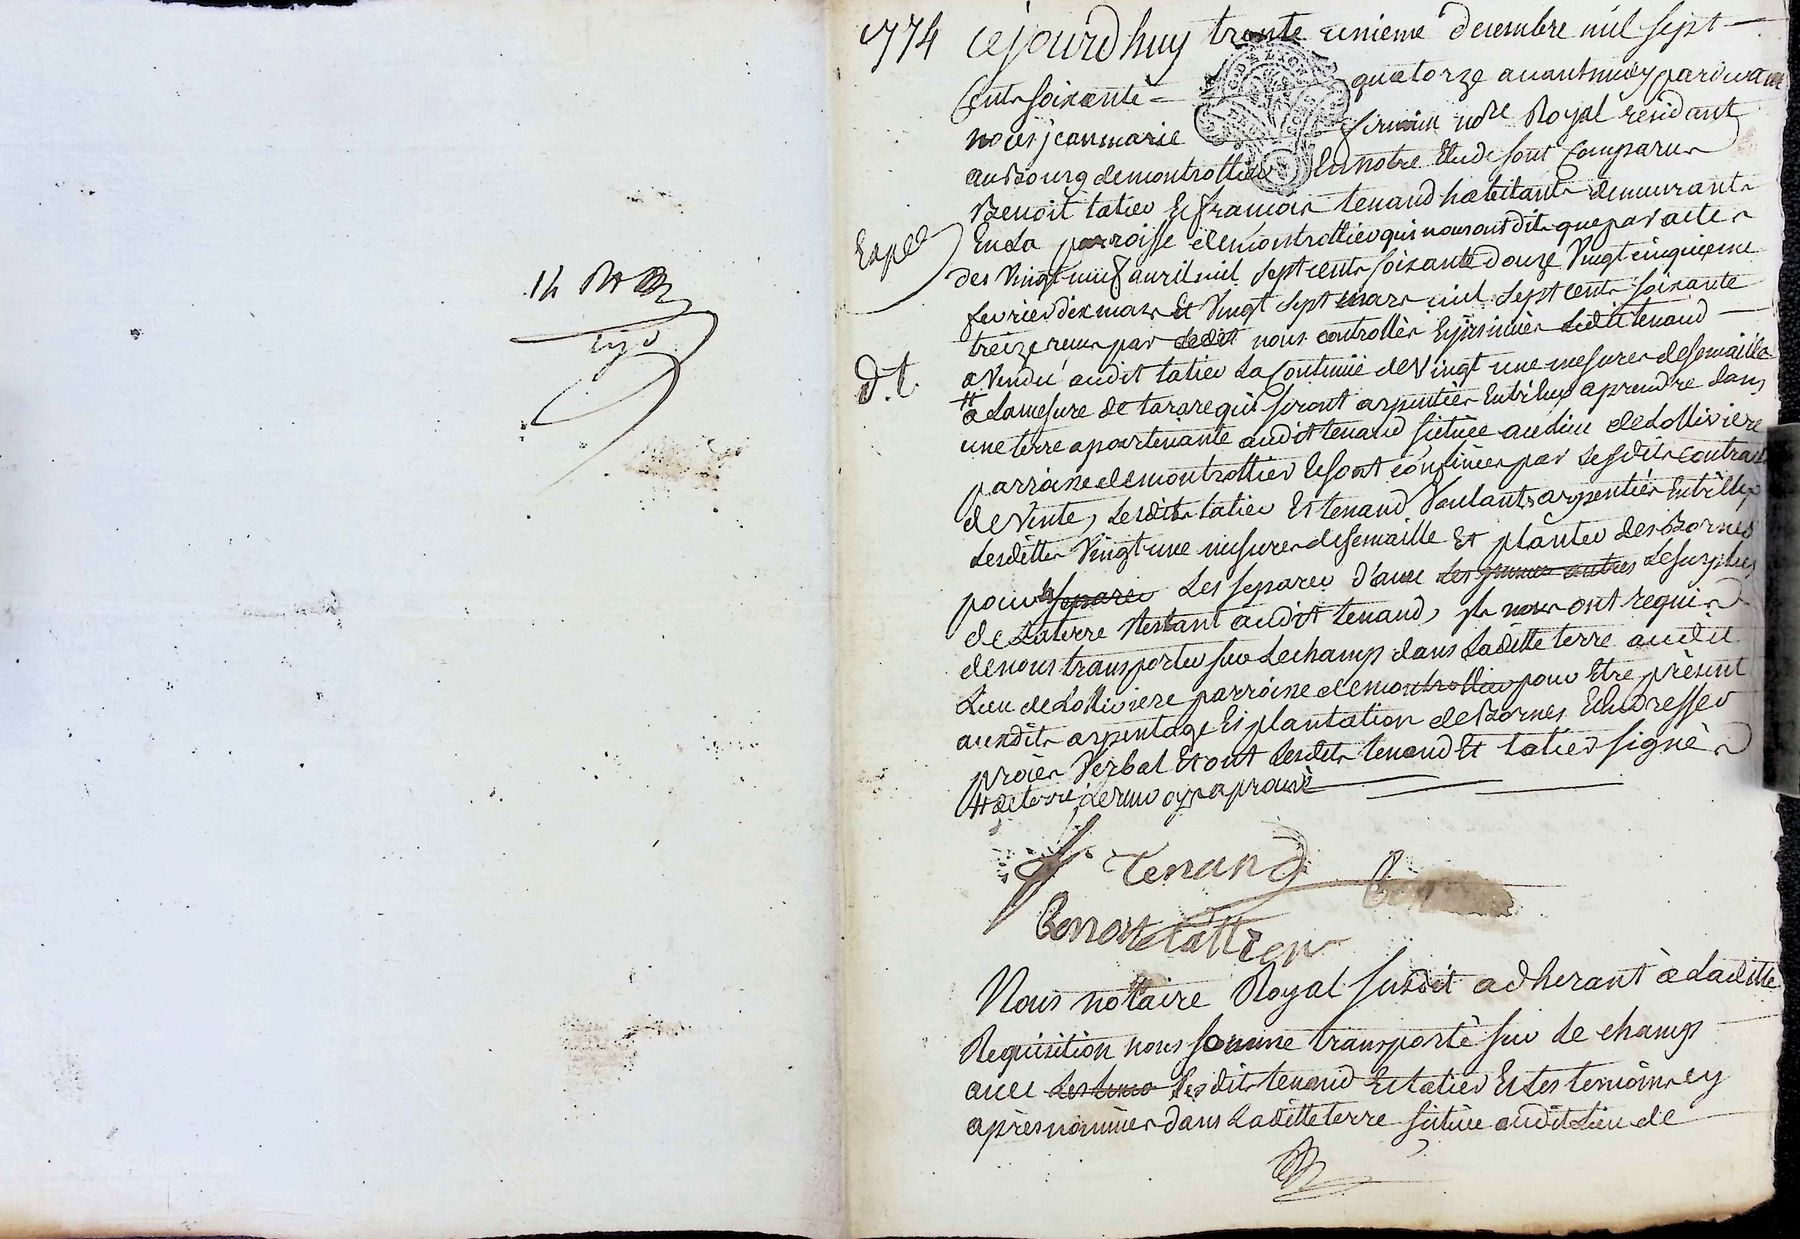 1774 cejourdhuy trente unieme decembre mil sept
Cents soixante quatorze avant midy pardevant
nous jean marie firmin nore Royal résidant
au Bourg de montrottier En notre Etude sont Comparus
Benoit tatier Et francois tenand habitants demeurants
Expée
En La parroisse de montrottier qui nous ont dits que par actes
des Vingt neuf avril mil sept cents soixante douze Vingt cinquieme
fevrier dix mars Et Vingt sept mars mil sept cents soixante
treize reçus par nous controllés Ledit tenand
d.t.
a Vendu audit tatier La Contenüe de Vingt une mesures de semaille
# a La mesure de tarare qui seront arpentées Entr'eux a prendre dans
une terre apartenante audit tenand scituée au Lieu de Lollivière
parroisse de montrottier Et sont confinées par Lesdits contrats
de Vente, Lesdits tatier Et tenand Voulants arpenter Entr'eux
Lesdittes Vingt une mesures de semaille Et planter des Bornes
pour Les separer d'avec Le surplus
de La terre restant audit tenand, ils nous ont requis
de nous transporter sur Le champ dans Laditte terre audit
Lieu de Lolliviere parroisse de montrottier pour Etre présent
auxdits arpentage Et plantation de Bornes Et En dresser
procès Verbal Et ont Lesdits tenand Et tatier signés
# de terre Le renvoy aprouvé
f. Tenand
Benoit tattier
Nous notaire Royal susdit adherant à Laditte
Requisition nous somme transporté sur Le champ
avec Lesdits tenand Et tatier Et Les temoins cy
après nommés dans Laditte terre scituée audit Lieu de